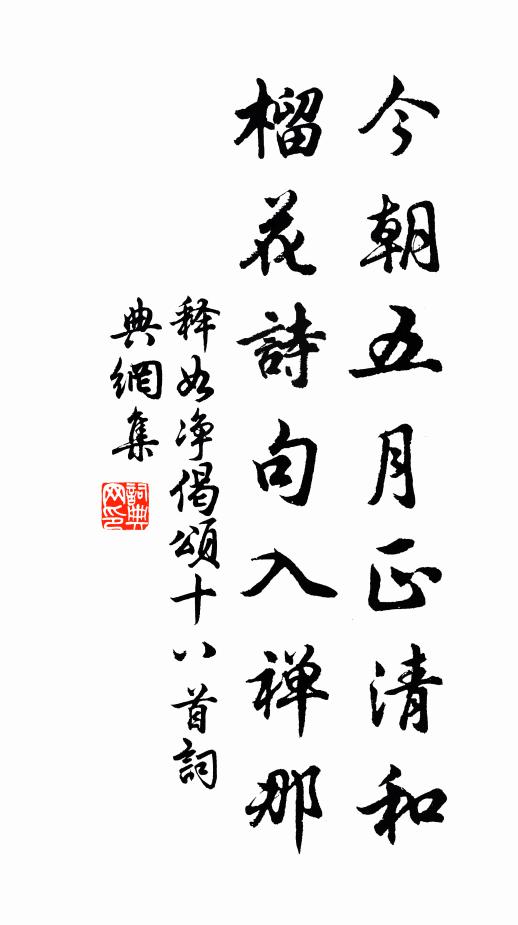 今朝五月正清和
榴花詩句入禅那
释如净偈頌十八首詞
典網集
詞典网印